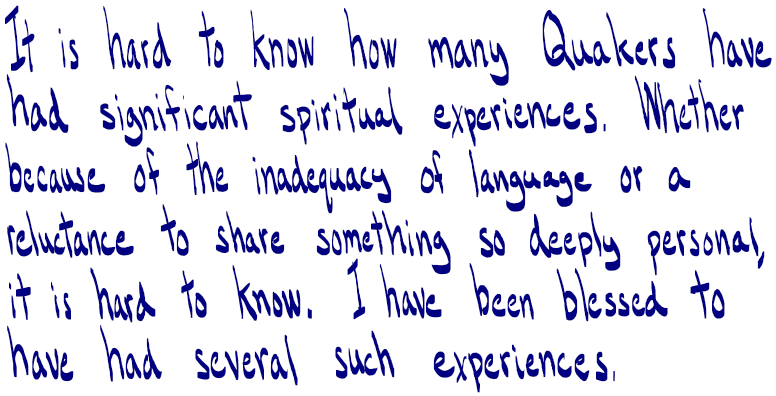 It is hard to know how many Quakers have
had significant spiritual experiences. Whether
because of the inadequacy of language or a
reluctance to share something so deeply personal,
it is hard to know. I have been blessed to
have had several such experiences.